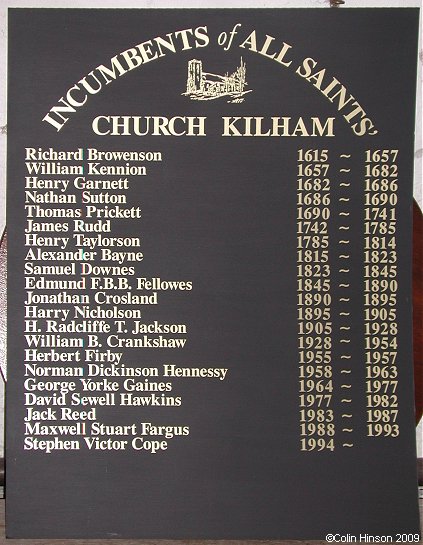 INCUMBENTS of ALL SAINTS'
CHURCH KILHAM
Richard Browenson 1615 ~ 1657
William Kennion 1657 ~ 1682
Henry Garnett 1682 ~ 1686
Nathan Sutton 1686 ~ 1690
Thomas Prickett 1690 ~ 1741
James Rudd 1742 ~ 1785
Henry Taylorson 1785 ~ 1814
Alexander Bayne 1815 ~ 1823
Samuel Downes 1823 ~ 1845
Edmund F.B.B. Fellowes 1845 ~ 1890
Jonathan Crosland 1890 ~ 1895
Harry Nicholson 1895 ~ 1905
H. Radcliffe T. Jackson 1905 ~ 1928
William B. Crankshaw 1928 ~ 1954
Herbert Firby 1955 ~ 1957
Norman Dickinson Hennessy 1958 ~ 1963
George Yorke Gaines 1964 ~ 1977
David Sewell Hawkins 1977 ~ 1982
Jack Reed 1983 ~ 1987
Maxwell Stuart Fargus 1988 ~ 1993
Stephen Victor Cope 1994 ~
©Colin Hinson 2009